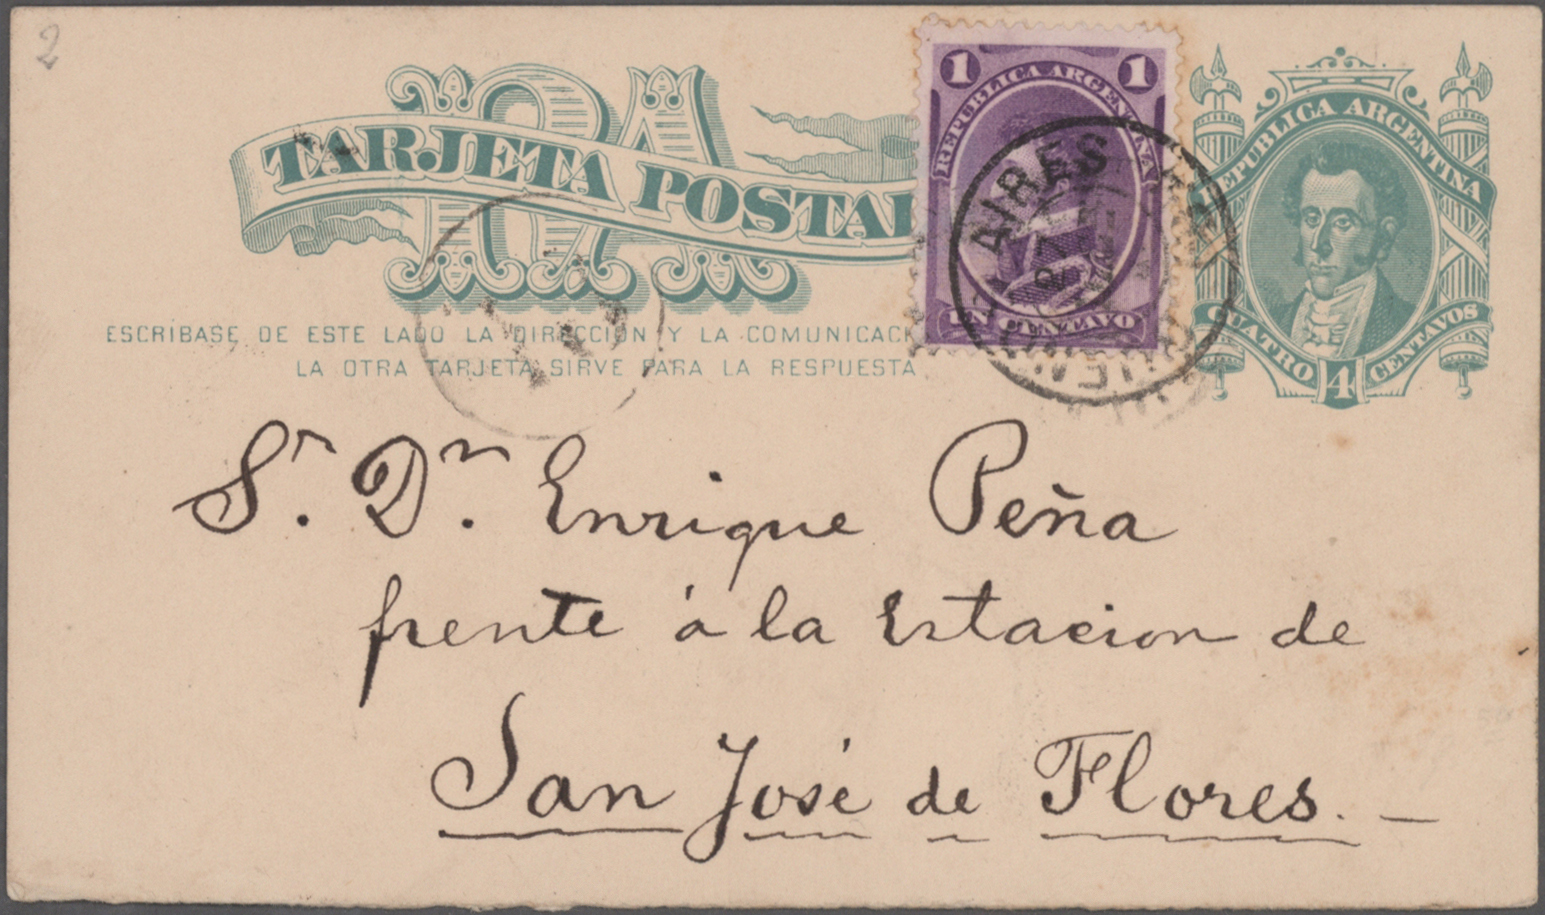 2
RA
TARJETA POSTAL
ESCRÍBASE DE ESTE LADO LA DIRECCION Y LA COMUNICACI
LA OTRA TARJETA SIRVE PARA LA RESPUESTA
1 1
REPUBLICA ARGENTINA
UN CENTAVO
BUENOS AIRES
REPUBLICA ARGENTINA
CUATRO 4 CENTAVOS
Sr. Dn. Enrique Peña
frente á la Estacion de
San José de Flores. —